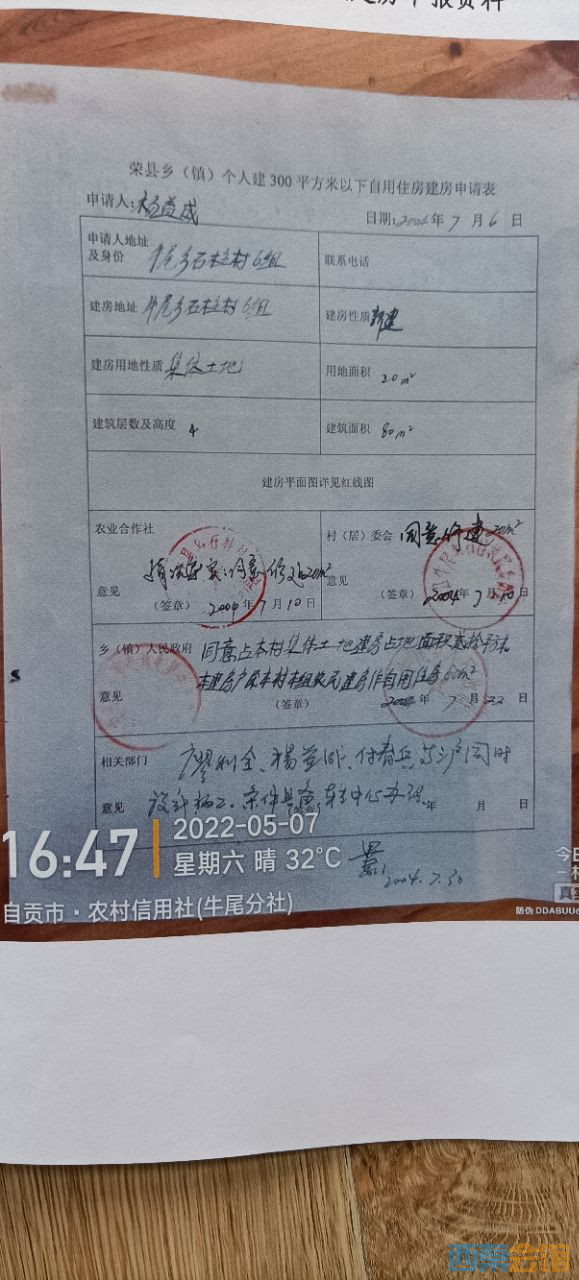 荣县乡（镇）个人建300平方米以下自用住房建房申请表
申请人:杨益成
日期:2004年7月6日
申请人地址及身份 牛尾乡石柱村6组
联系电话
建房地址 牛尾乡石柱村6组
建房性质 新建
建房用地性质 集体土地
用地面积 20m²
建筑层数及高度 4
建筑面积 80m²
建房平面图详见红线图
农业合作社
情况属实,同意修建20m²
意见
(签章) 2004年7月10日
村（居）委会 同意修建20m²
意见
(签章) 2004年7月10日
乡（镇）人民政府 同意占本村集体土地建房占地面积贰拾平方米
本建房户属本村本组农民建房作自用住房60m²
意见
(签章) 年7月22日
相关部门 杨益成、付春兵 户同时
意见 设计施工 年 月 日
2004.7.30
16:47
2022-05-07
星期六 晴 32℃
自贡市·农村信用社(牛尾分社)
防伪 DDABUU